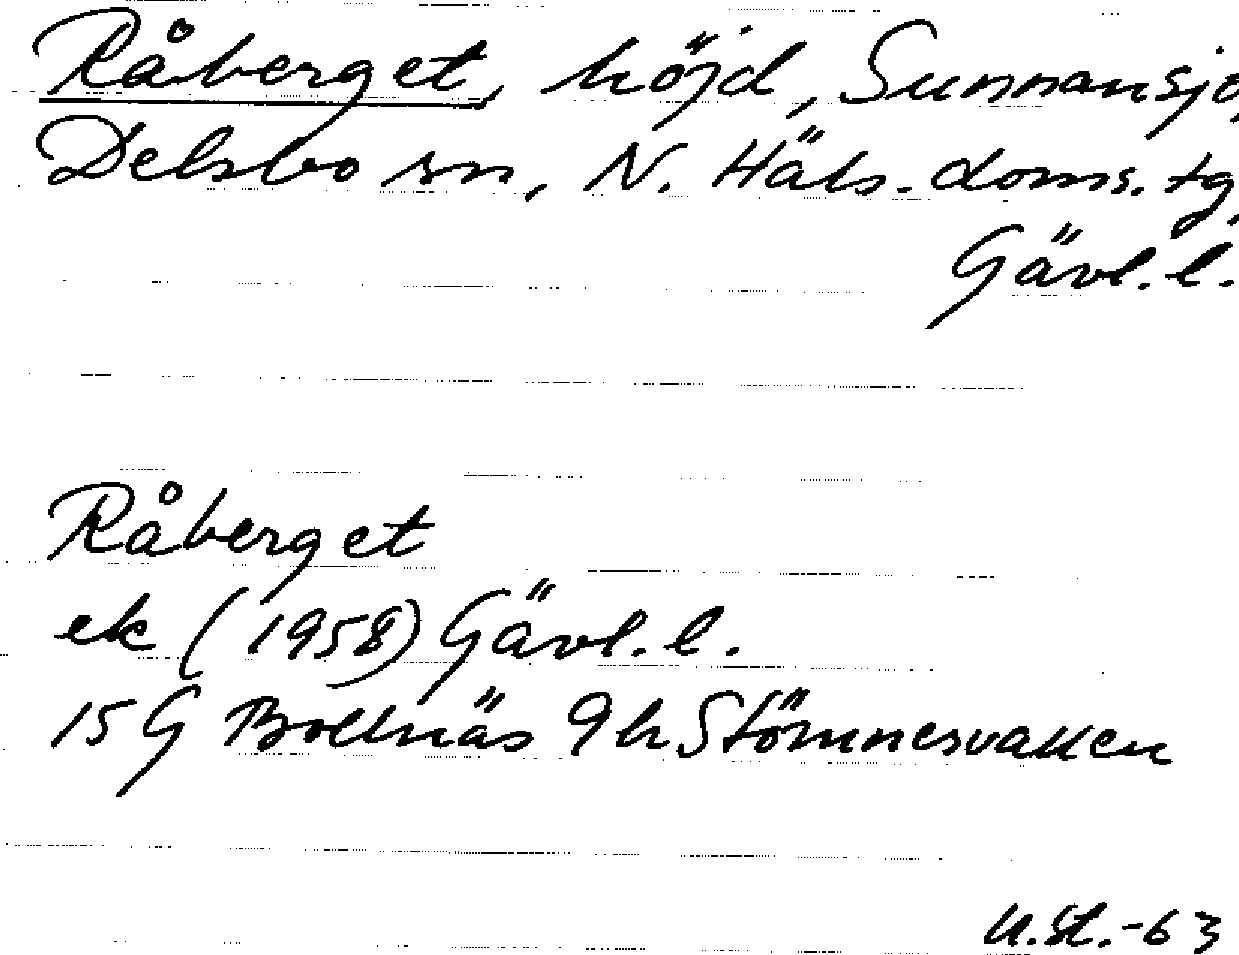 Råberget, höjd, Sunnansjö,
Delsbo sn, N. Häls. doms. tg,
Gävl. l.
Råberget
ek (1958) Gävl. l.
15 G Bollnäs 9 h Stömnesvallen
U.St.-63